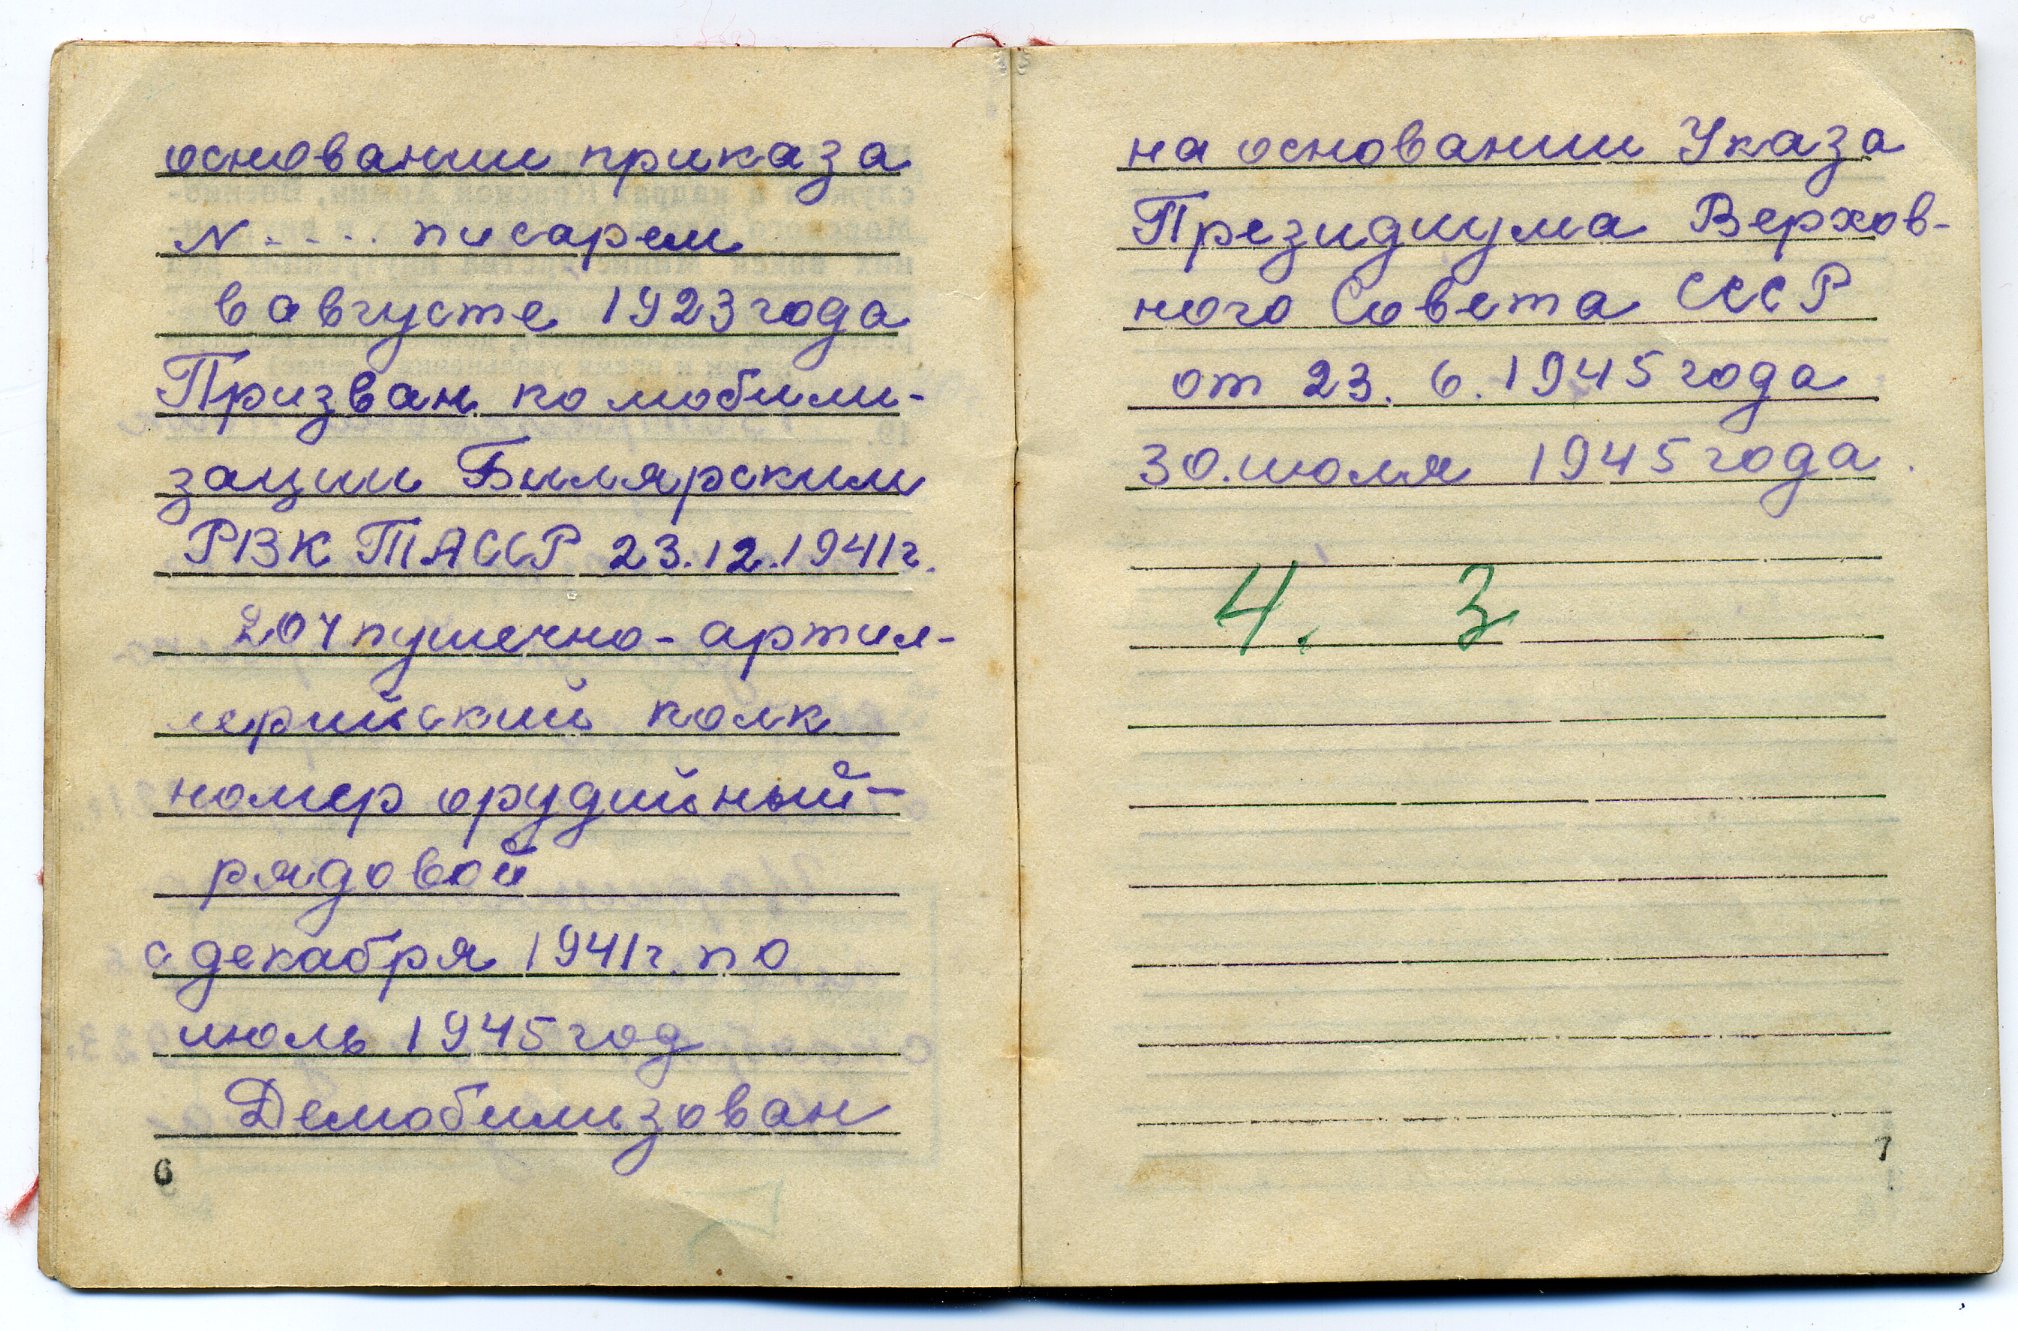 основании приказа
N . . . . писарем
в августе 1923 года
Призван по мобили-
зации Билярским
РВК ТАССР 23.12.1941г.
204 пушечно-артил-
лерийский полк
номер орудийный-
рядовой
с декабря 1941г. по
июль 1945 год
Демобилизован
6
на основании Указа
Президиума Верхов-
ного Совета СССР
от 23. 6. 1945 года
30. июля 1945 года.
4. 3
7